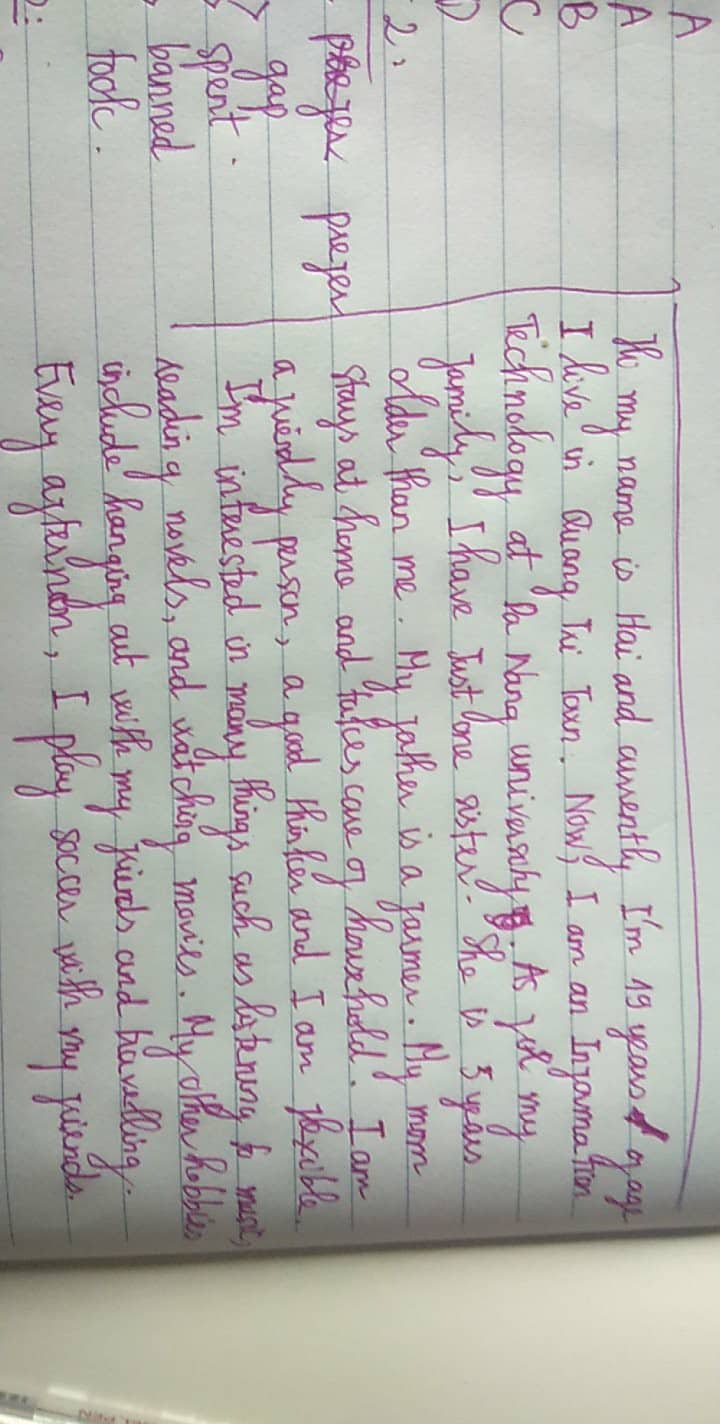 A
A
B
C
D
2.
prefer
gap
spent.
banned
took.
2:
Hi my name is Hai and currently I'm 19 years of age
I live in Quang Tri Town. Now, I am an Information
Technology at Da Nang university. As for my
family, I have Just one sister. She is 5 years
older than me. My father is a farmer. My mom
stays at home and takes care of household. I am
a friendly person, a good thinker and I am flexible.
I'm interested in many things such as listening to music,
reading novels, and watching movies. My other hobbies
include hanging out with my friends and travelling.
Every afternoon, I play soccer with my friends.